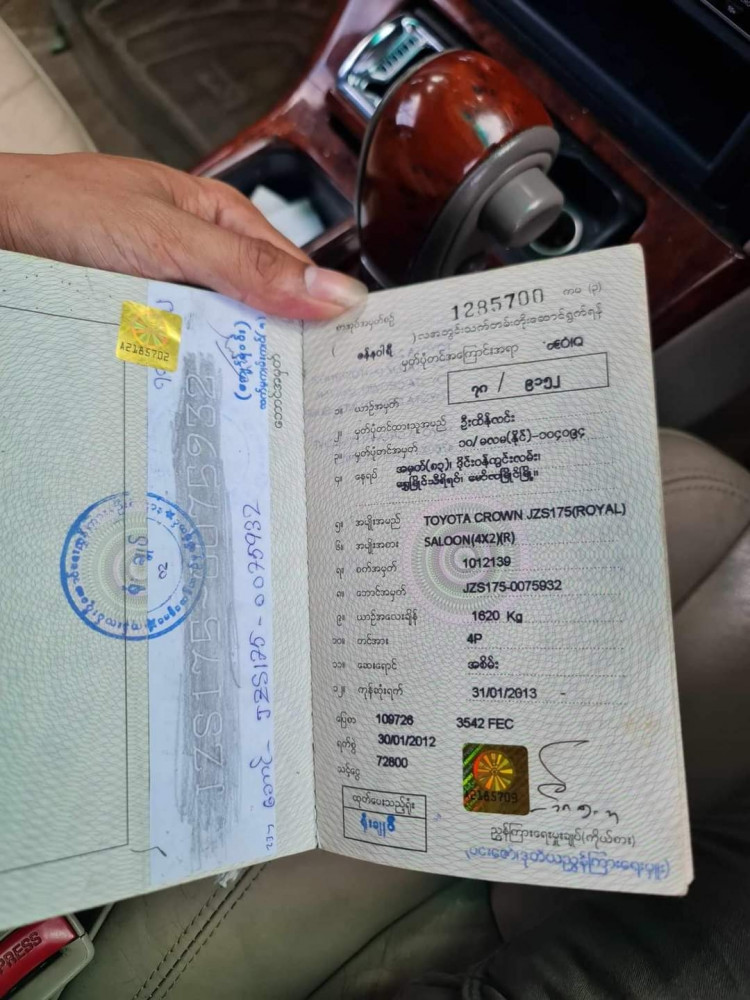 A2185702
JZS175-0075932
ဘောင်အမှတ်
JZS175 - 0075932
ရုံးချုပ်
1285700 ကမ (၃)
စာအုပ်အမှတ်စဉ်
ဇန်နဝါရီ
မှတ်ပုံတင်အကြောင်းအရာ
၇ဂ / ၉၁၅၂
၁။ ယာဉ်အမှတ်
၂။ မှတ်ပုံတင်ထားသူအမည် ဦးထိန်လင်း
၃။ မှတ်ပုံတင်အမှတ် ၁၀/မလမ(နိုင်)-၁၀၄၀၉၄
၄။ နေရပ် အမှတ်(၈၃)၊
၅။ အမျိုးအမည် TOYOTA CROWN JZS175(ROYAL)
၆။ အမျိုးအစား SALOON(4X2)(R)
၇။ စက်အမှတ် 1012139
၈။ ဘောင်အမှတ် JZS175-0075932
၉။ ယာဉ်အလေးချိန် 1620 Kg
၁၀။ တင်အား 4P
၁၁။ ဆေးရောင် အစိမ်း
၁၂။ ကုန်ဆုံးရက် 31/01/2013 -
ပြေစာ 109726 3542 FEC
ရက်စွဲ 30/01/2012
သင့်ငွေ 72800
ထုတ်ပေးသည့်ရုံး
ရုံးချုပ်
ညွှန်ကြားရေးမှူးချုပ်(ကိုယ်စား)
PRESS